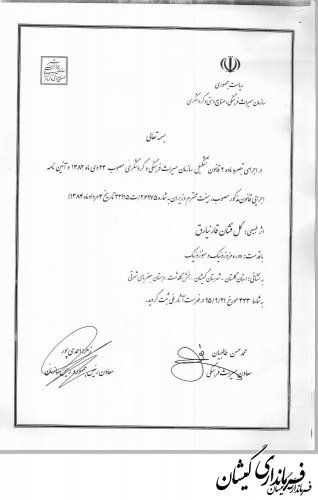 ریاست جمهوری
سازمان میراث فرهنگی، صنایع دستی و گردشگری
بسمه تعالی
در اجرای تبصره ماده ۲ قانون تشکیل سازمان میراث فرهنگی و گردشگری مصوب ۲۳ دی ماه ۱۳۸۲ و آئین نامه
اجرایی قانون مذکور مصوب هیئت محترم وزیران به شماره تاریخ مرداد ماه ۱۳۸۴؛
اثر طبیعی: گل فشان قارنیارق
با قدمت: دوره مزوزوئیک و سنوزوئیک
به نشانی: استان گلستان - شهرستان گمیشان - بخش گلدشت - دهستان جعفربای شرقی
به شماره ۳۴۳ مورخ ۹۵/۹/۲۱ در فهرست آثار ملی ثبت گردید.
محمد حسن طالبیان
معاون میراث فرهنگی
زهرا احمدی پور
معاون رئیس جمهور و رئیس سازمان
فرمانداری گمیشان
فرمانداری گمیشان